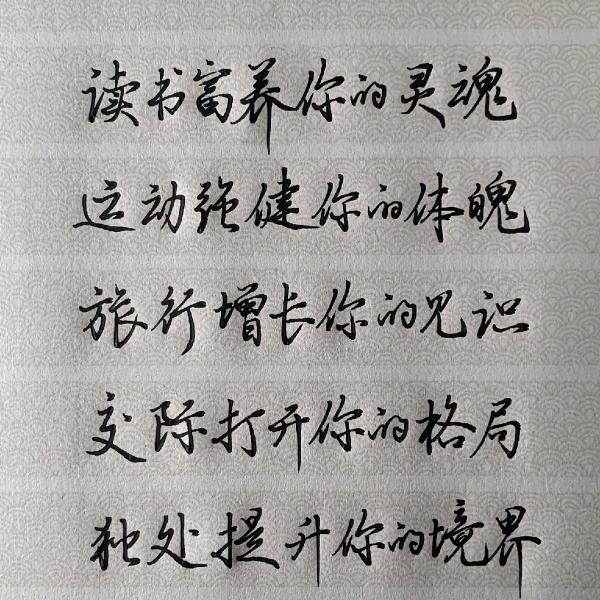 读书富养你的灵魂
运动强健你的体魄
旅行增长你的见识
交际打开你的格局
独处提升你的境界